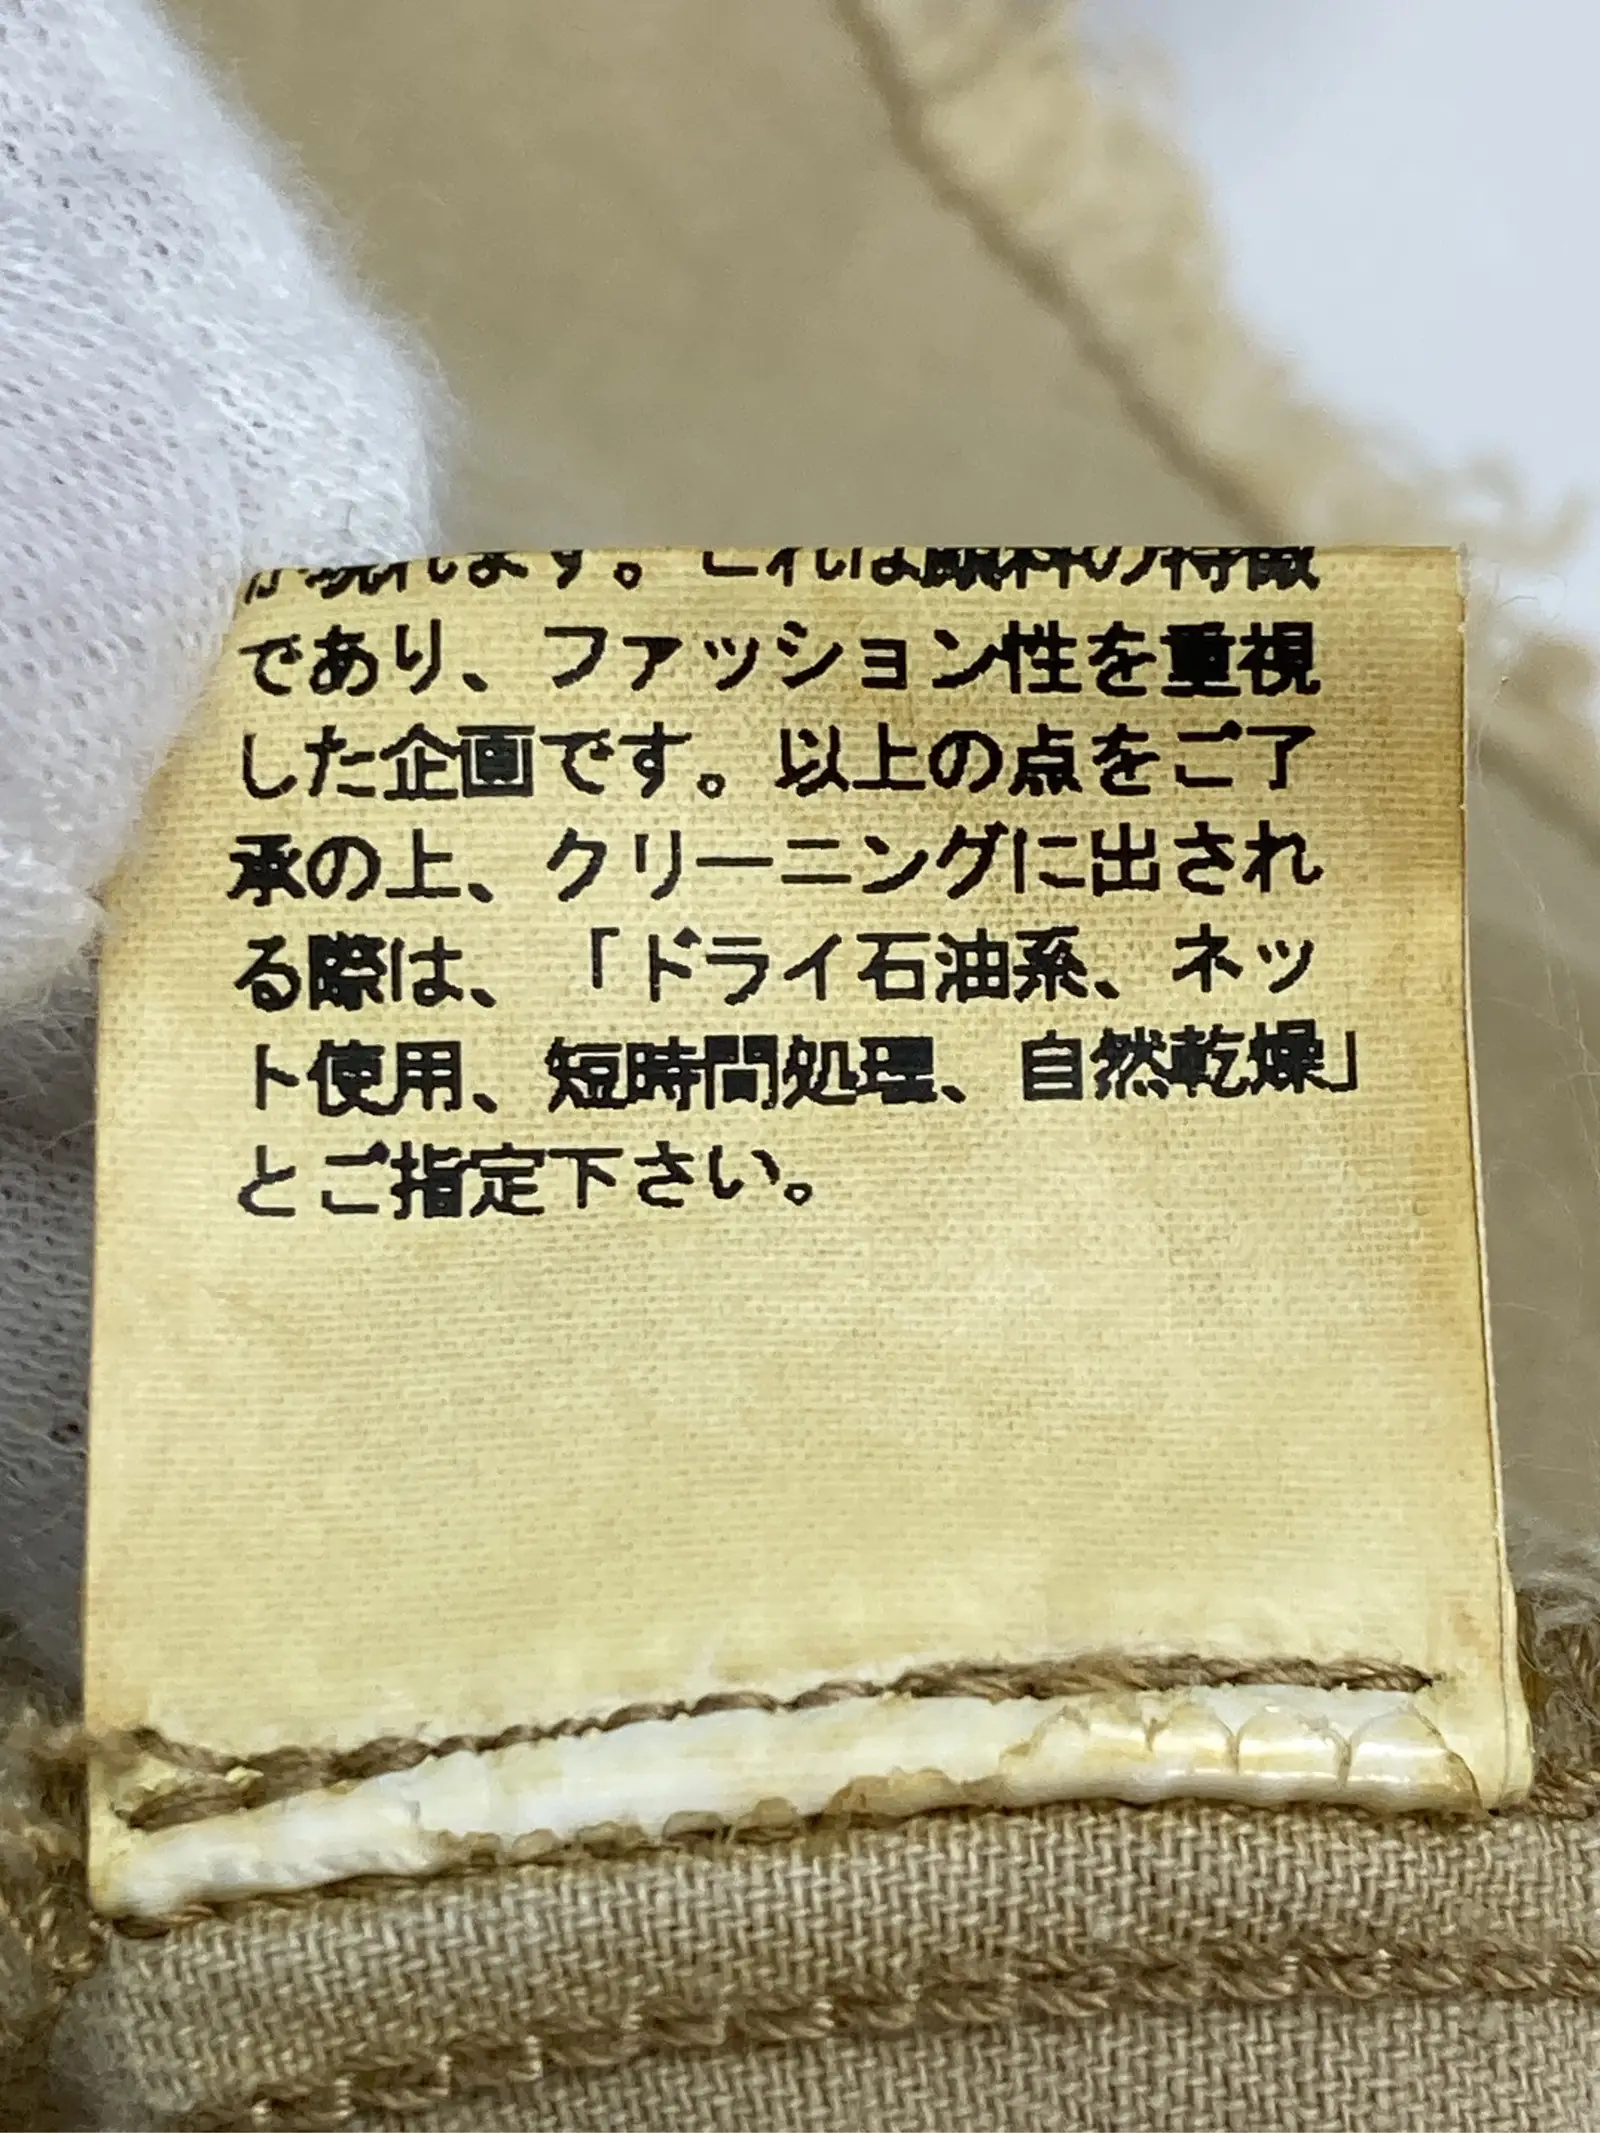 が現れます。これは顔料の特徴
であり、ファッション性を重視
した企画です。以上の点をご了
承の上、クリーニングに出され
る際は、「ドライ石油系、ネッ
ト使用、短時間処理、自然乾燥」
とご指定下さい。